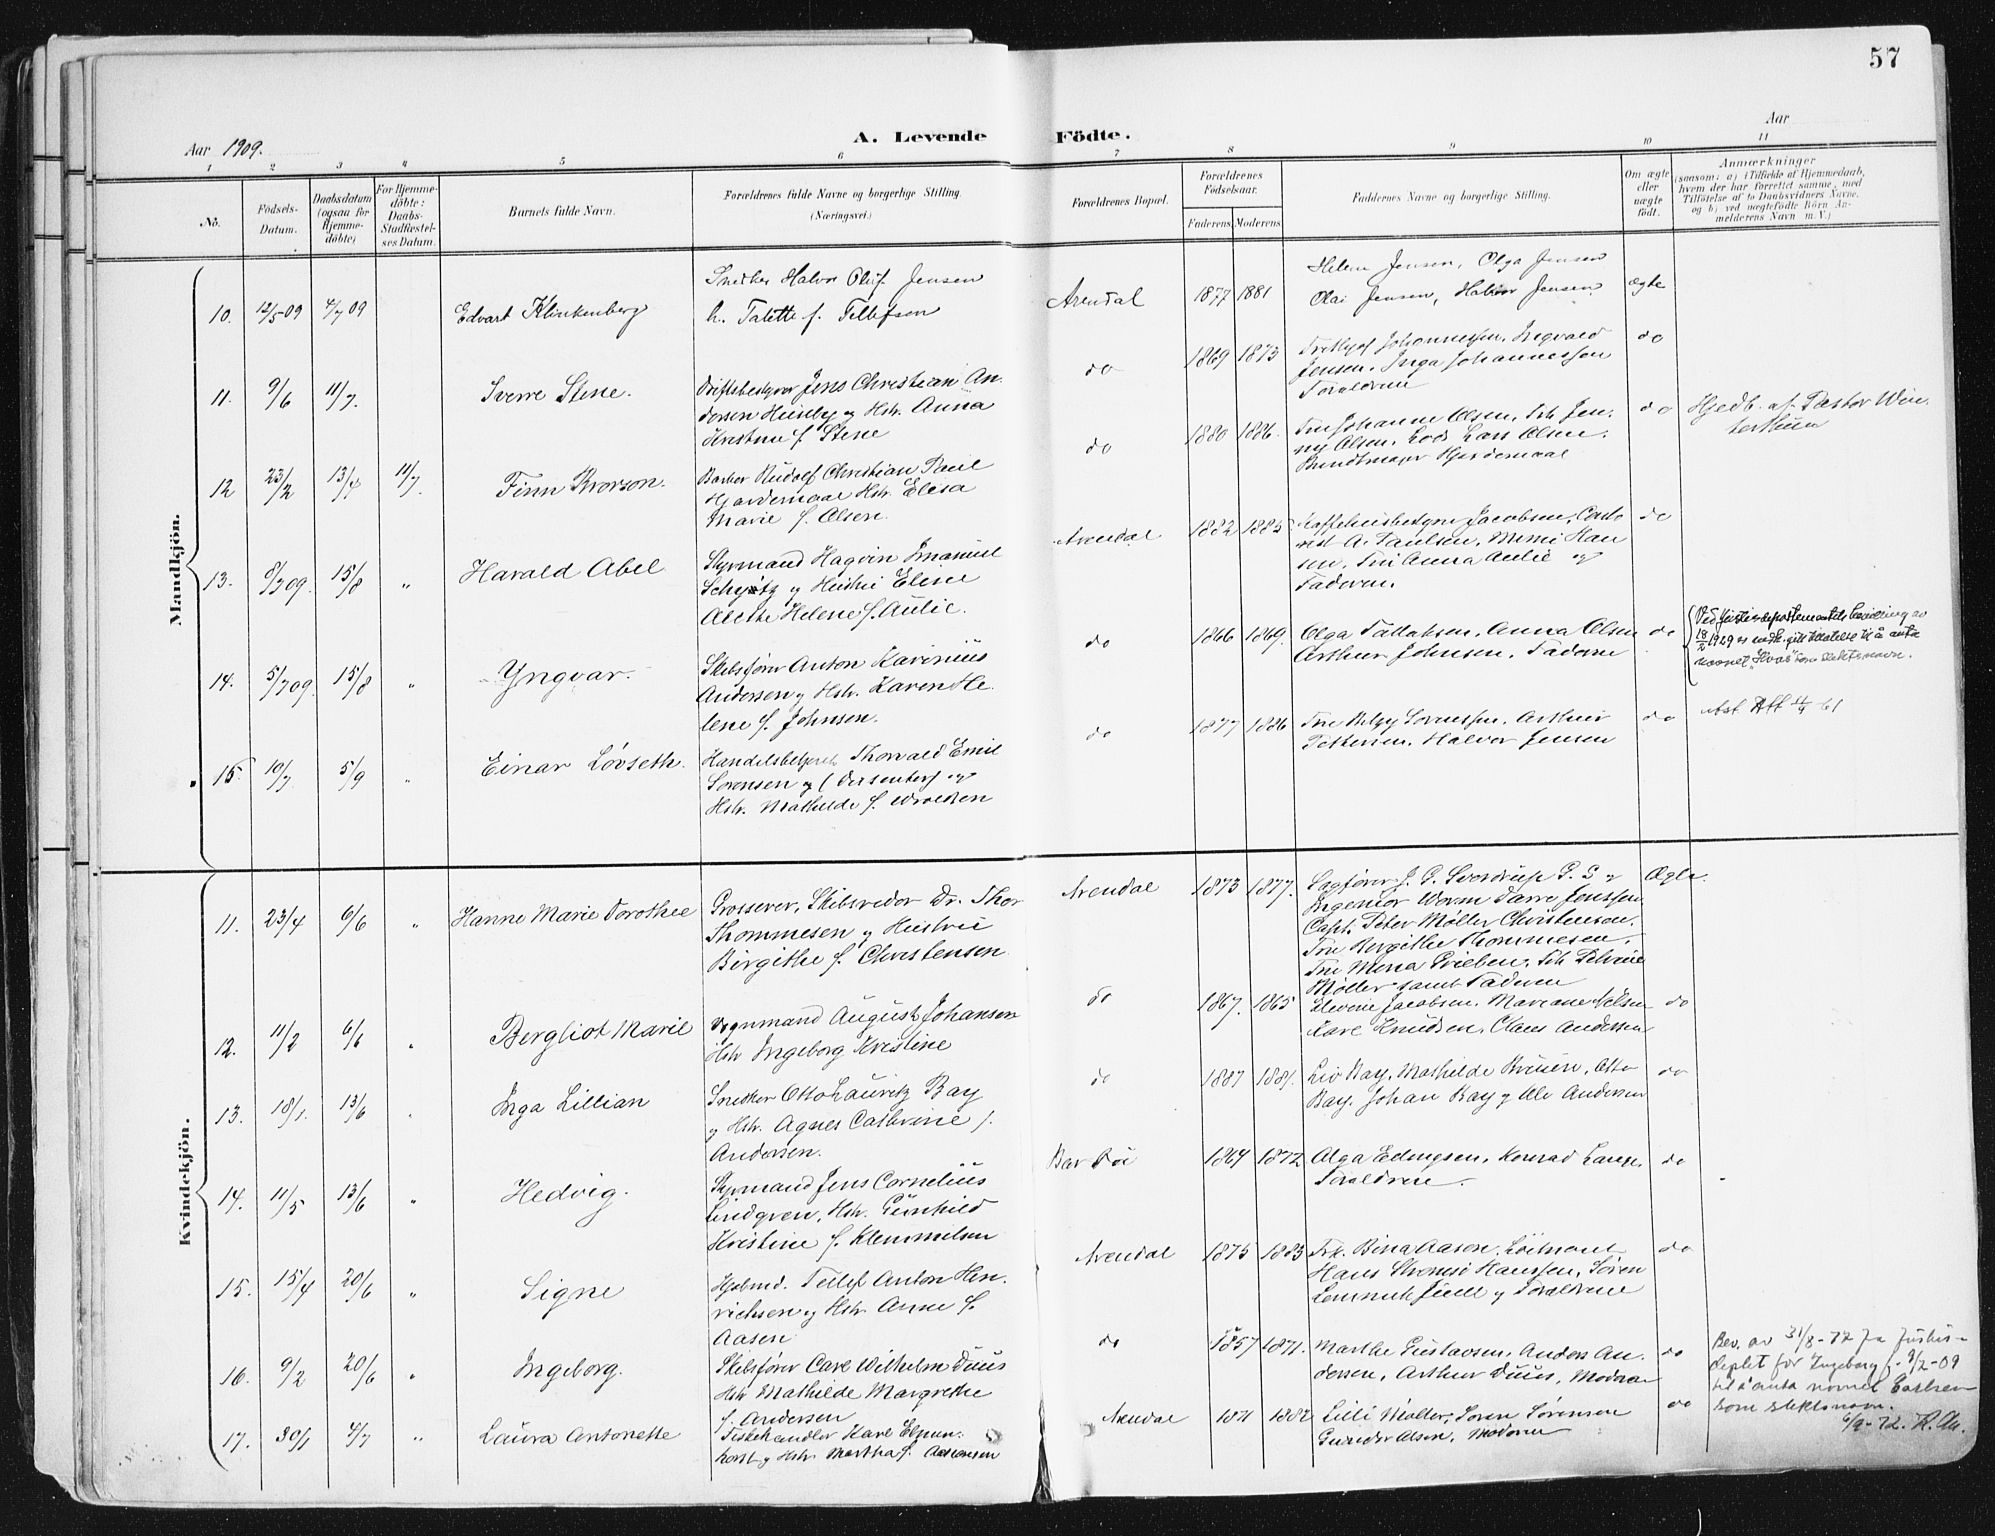 57
Aar 1909.
A. Levende Födte.
Aar
1 2 3 4 5 6 7 8 9 10 11
No.
Födsels-
Datum.
Daabsdatum
(ogsaa for
Hjemme-
döbte)
For Hjemme-
döbte:
Daabs-
Stadfæstel-
ses Datum.
Barnets fulde Navn.
Forældrenes fulde Navne og borgerlige Stilling.
(Næringsvei.)
Forældrenes Bopæl.
Forældrenes
Födselsaar.
Faderens Moderens
Faddernes Navne og borgerlige Stilling.
Om ægte
eller
uægte
födt.
Anmærkninger
(saasom: a) i Tilfælde af Hjemmedaab,
hvem der har forrettet samme, med
Tilföielse af to Daabsvidners Navne.
og b) ved uægtefödte Börn An-
melderens Navn m. V.)
Mandkjön.
10. 12/5 09 4/7 09 Edvart Klinkenberg
Snedker Halvor Oluf Jensen
h. Talette f. Tellefsen
Arendal 1877 1881
Helene Jensen, Olga Jensen
Olai Jensen, Halvor Jensen
ægte
11. 9/6 11/7. Sverre Stene.
Driftsbestyrer Jens Christian An-
dersen Huseby og Hstr. Anna
Kristine f. Stene
do 1869 1873
Johannessen, Ingvald
Jensen, Inga Johannessen
Forældrene
do
12 23/2 13/4 11/7. Finn Brorson.
Barber Rudolf Christian Paul
Hjardemaal Hstr. Elisa
Marie f. Olsen.
do 1880 1886.
Fru Johanne Olsen, Frk Jen-
ny Olsen, Lods Lars Olsen.
Hjardemaal
do
Hjedb. af Pastor Win-
terhuun
13. 8/7 09. 15/8 " Harald Abel
Styrmand Hagvin Imanuel
Schyøtz og Hustru Elise
Alethe Helene f. Aulie.
Arendal 1882 1885
Jacobsen,
A. Paulsen, Mimi Han
sen, Fru Anna Aulie og
Faderen.
do
14. 5/7 09. 15/8 " Yngvar.
Skibsfører Anton Karinius
Andersen og Hstr. Karen He-
lene f. Johnsen.
do 1866 1869.
Olga Tallaksen, Anna Olsen
Arthur Johnsen, Faderne
do
Ved Justisdepartementets bevilling av
18/2 1929 er gitt tillatelse til å anta
navnet "Hvas" som slektsnavn.
15. 10/7 5/9 " Einar Løvseth.
Handelsbetjent Thorvald Emil
Sorensen og
Hstr. Mathilde f.
do 1877 1886
Fru Betzy Sorensen, Arthur
Pettersen, Halvor Jensen
do
Att 61
Kvindekjön.
11. 23/4 6/6 " Hanne Marie Dorothee
Grosserer, Skibsreder Dr. Thor
Thommesen og Hustru
Birgithe f. Christensen
Arendal 1873 1877.
Sagfører J. G. Sverdrup
Ingeniør Worm Darre Jenssen
Capt. Peter Møller Christensen.
Fru Bergithe Thommesen,
Fru Mena Grieben, Frk
Møller samt Faderen
Ægte.
12. 11/2 6/6 " Bergliot Marie
August Johansen
Hstr Ingeborg Kristine
do 1867. 1865
Elevine Jacobsen, Mariane Nilsen
Karl Knudsen, Claus Andersen
do
13. 18/1. 13/6 " Inga Lillian
Snedker Otto Lauritz Bay
og Hstr. Agnes Cathrine f.
Andersen.
do 1887 1881.
Liv Bay, Mathilde Bruun, Otto
Bay, Johan Bay og Ole Andersen
do
14. 11/5 13/6 " Hedvig.
Styrmand Jens Cornelius
Lindgren, Hstr. Gunhild
Kristine f. Klemmetsen
1864 1872
Olga Konrad
Forældrene.
do
15. 15/4 20/6 " Signe
Tellef Anton Hen-
richsen og Hstr. Anne f.
Aasen
Arendal 1875 1883
Frk. Bina Aasen, Løitnant
Hans Stromsø Hanssen, Søren
og Forældrene
do
16. 9/2 20/6 " Ingeborg.
Skibsfører Carl Wilhelm Duus
Hstr Mathilde Margrethe
f. Andersen
do 1857 1871.
Marthe Gustavsen, Anders An-
dersen, Arthur Duus, Moderen
do
Bev. av 31/8-72 fra Justis-
deptet for Ingeborg f. 9/2-09
til å anta navnet Carlsen
som slektsnavn.
6/9-72.
17. 30/1 4/7 " Laura Antonette
Fiskehandler Karl Elmen-
horst og Hstr Martha f.
Arendal 1871 1882
Lilli Møller, Soren Sørensen
Gunder Olsen, Moderen
do